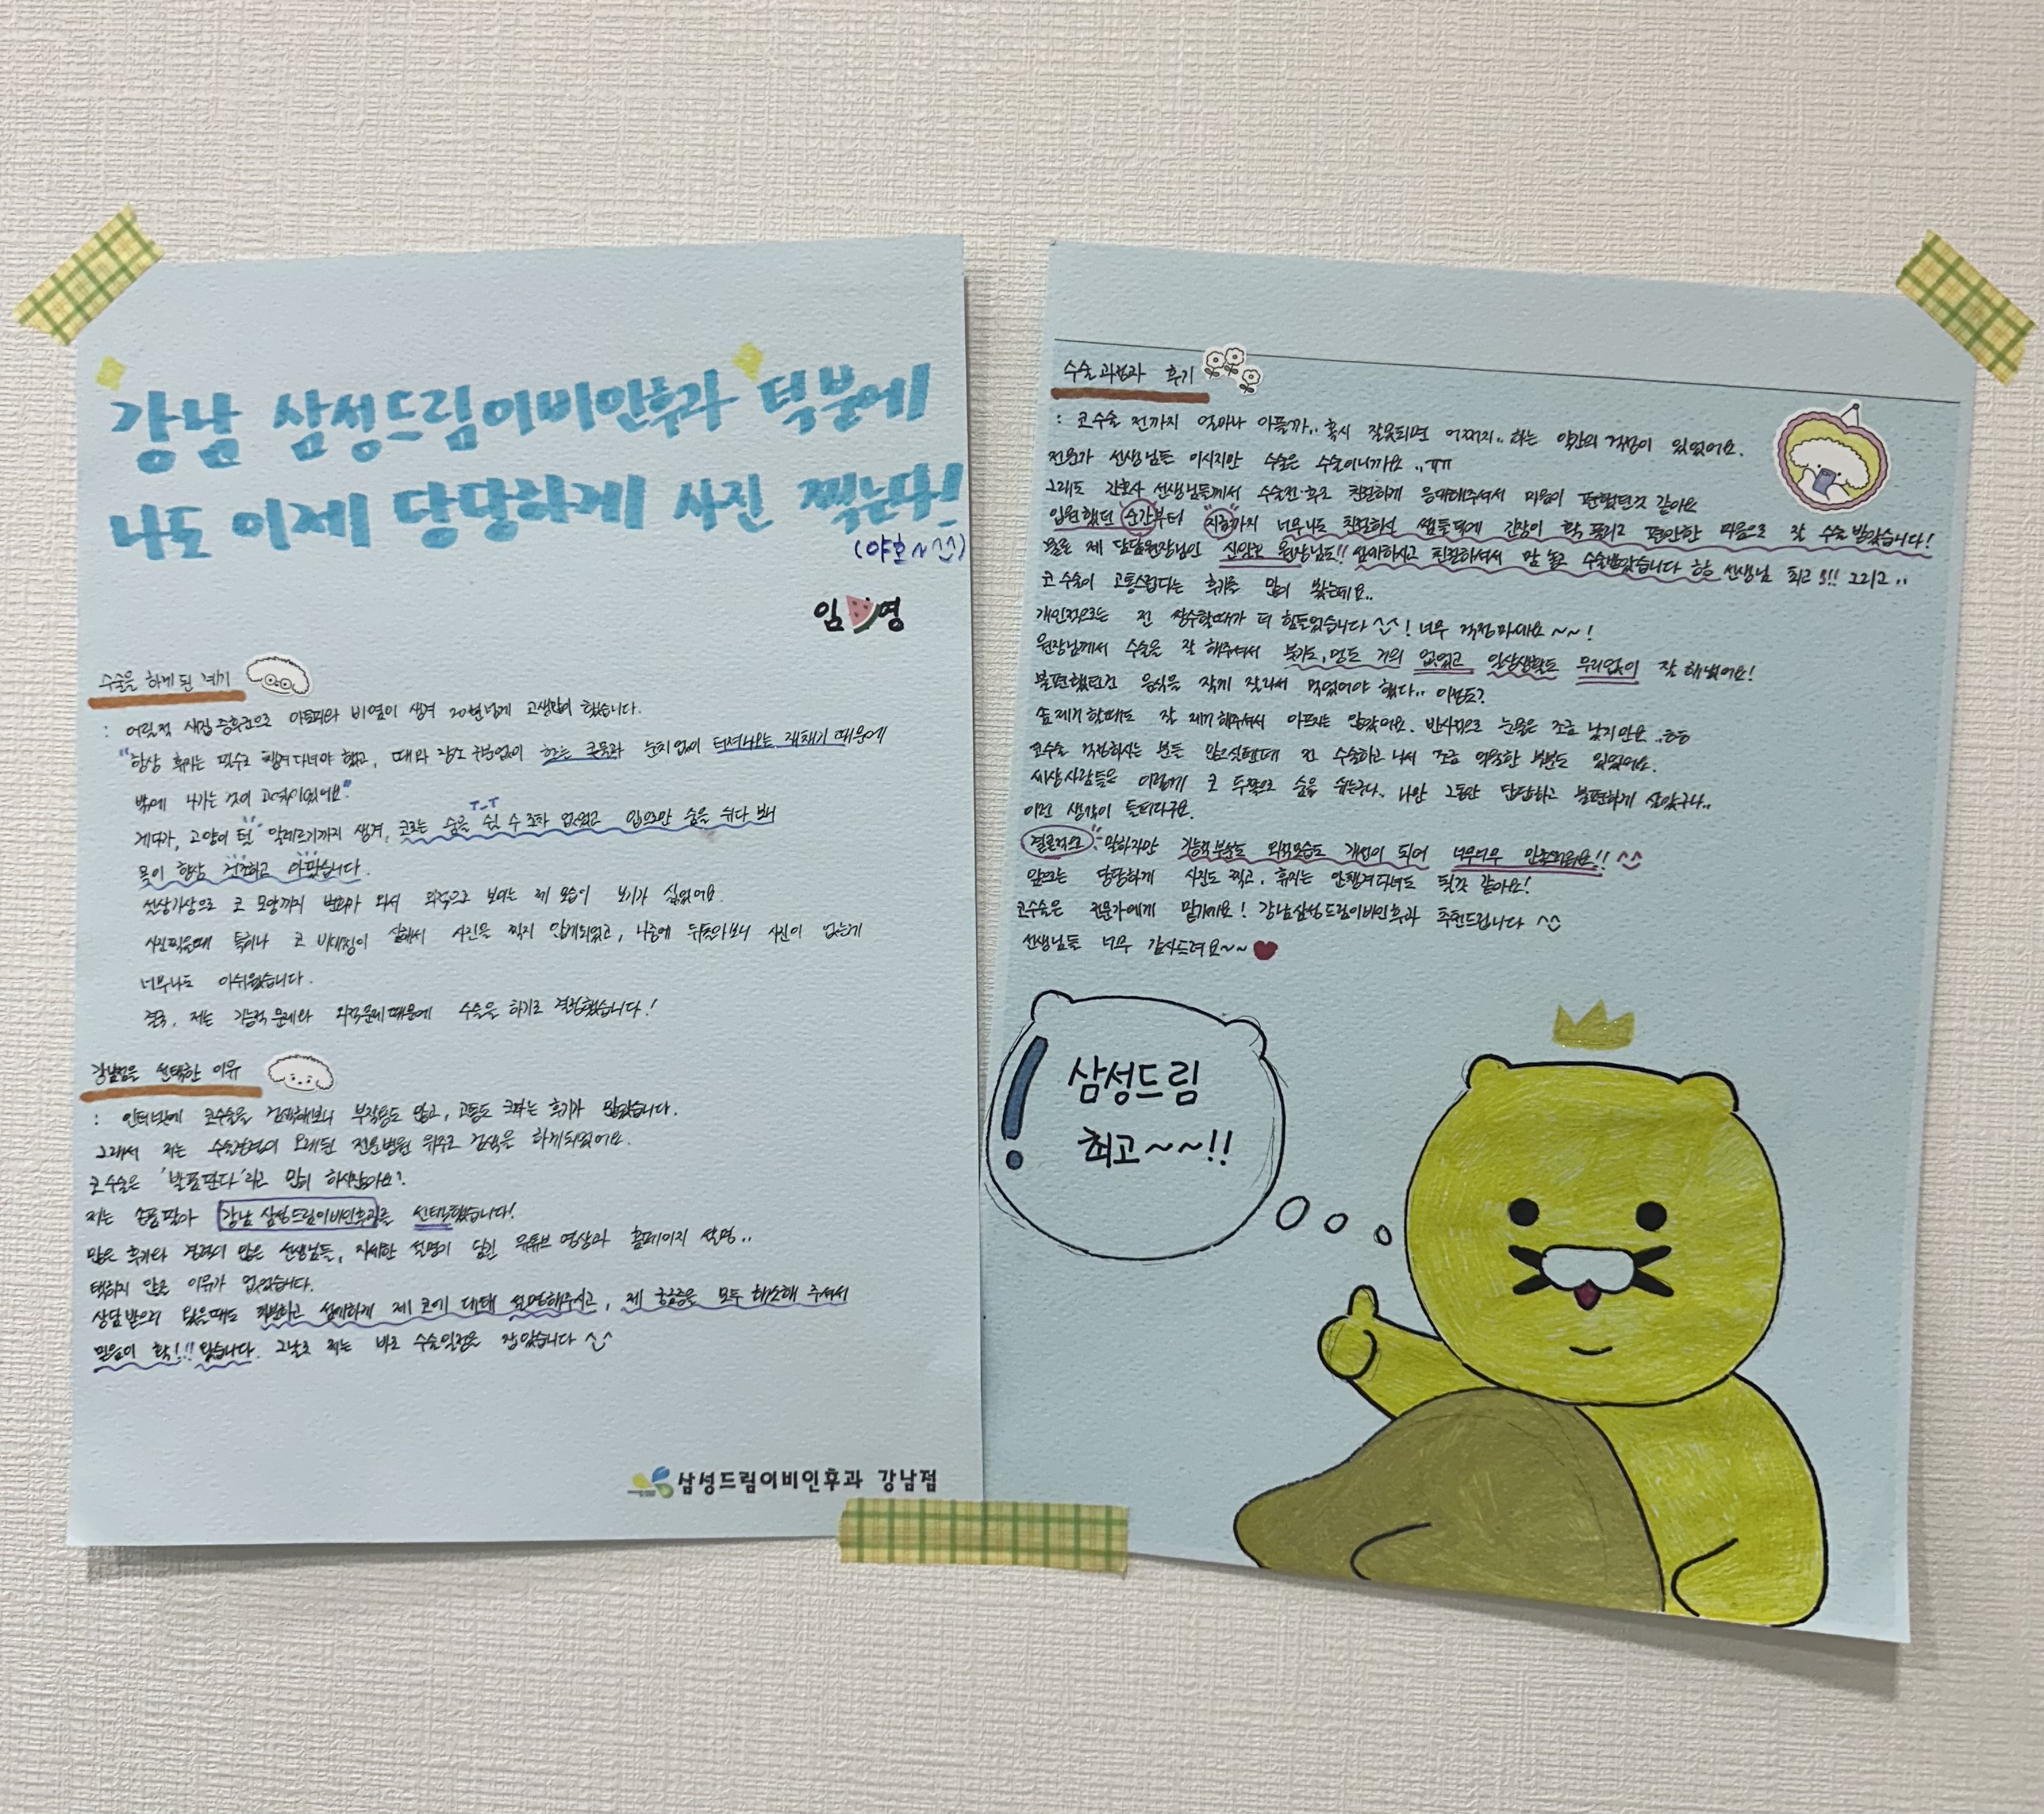 강남 삼성드림이비인후과 덕분에
나도 이제 당당하게 사진 찍는다!
(야호~^^)
임 영
수술을 하게 된 계기
: 어릴적 새집증후군으로 아토피와 비염이 생겨 20년넘게 고생많이 했습니다.
"항상 휴지는 필수로 챙겨다녀야 했고, 때와 장소 구분없이 흐르는 콧물과 눈치없이 터져나오는 재채기 때문에
밖에 나가는 것이 고역이었어요"
T_T
게다가, 고양이 털 알레르기까지 생겨, 코로는 숨을 쉴 수 조차 없었고 입으로만 숨을 쉬다 보니
목이 항상 건조하고 아팠습니다.
설상가상으로 코 모양까지 변화가 와서 외적으로 보이는 제 모습이 보기가 싫었어요.
사진찍을때 특히나 코 비대칭이 심해서 사진을 찍지 않게되었고, 나중에 뒤돌아보니 사진이 없는게
너무나도 아쉬웠습니다.
결국, 저는 기능적 문제와 외적문제 때문에 수술을 하기로 결정했습니다!
강남점을 선택한 이유
: 인터넷에 코수술을 검색해보니 부작용도 많고, 고통도 크다는 후기가 많았습니다.
그래서 저는 수술관련의 오래된 전문병원 위주로 검색을 하게되었어요.
코수술은 '발품판다'라고 많이 하시잖아요?
저는 손품팔아 강남 삼성드림이비인후과를 선택했습니다!
많은 후기와 경력이 많은 선생님들, 자세한 설명이 담긴 유튜브 영상과 홈페이지 설명..
택하지 않을 이유가 없었습니다.
상담 받으러 갔을때도 차분하고 섬세하게 제 코에 대해 설명해주시고, 제 궁금증을 모두 해소해 주셔서
믿음이 확!!! 갔습니다. 그날로 저는 바로 수술일정을 잡았습니다 ^^
삼성드림이비인후과 강남점
수술과정과 후기
: 코수술 전까지 얼마나 아플까.. 혹시 잘못되면 어쩌지.. 하는 약간의 걱정이 있었어요.
전문가 선생님들 이시지만 수술은 수술이니까요..ㅠㅠ
그래도 간호사 선생님들께서 수술전·후로 친절하게 응대해주셔서 마음이 편했던것 같아요
입원했던 순간부터 "지혈"까지 너무나도 친절하신 쌤들덕에 긴장이 확 풀리고 편안한 마음으로 잘 수술 받았습니다!
물론 제 담당원장님인 원장님도!! 섬세하시고 친절하셔서 맘 놓고 수술받았습니다 선생님 최고!!! 그리고..
코 수술이 고통스럽다는 후기를 많이 봤는데요..
개인적으로는 전 생수할때가 더 힘들었습니다^^! 너무 걱정마세요~~!
원장님께서 수술을 잘 해주셔서 붓기도, 멍도 거의 없었고 일상생활도 무리없이 잘 해냈어요!
불편했던건 음식을 작게 잘라서 먹었어야 했다.. 이정도?
솜제거할때도 잘 제거해주셔서 아프지는 않았어요. 반사적으로 눈물은 조금 났지만요..ㅎㅎ
코수술 걱정하시는 분들 많으실텐데 전 수술하고 나서 조금 억울한 부분도 있었어요.
세상사람들은 이렇게 코 두쪽으로 숨을 쉬는구나. 나만 그동안 답답하고 불편하게 살았구나..
이런 생각이 들더라구요.
결론적으로 말하자면 기능적부분도 외적모습도 개선이 되어 너무너무 만족해요!! ^^
앞으로는 당당하게 사진도 찍고, 휴지는 안챙겨다녀도 될것 같아요!
코수술은 전문가에게 맡기세요! 강남삼성드림이비인후과 추천드립니다 ^^
선생님들 너무 감사드려요~~♥
삼성드림
최고~~!!